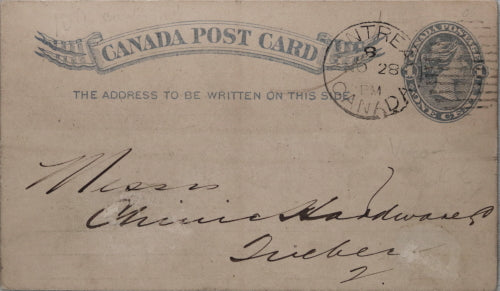 CANADA POST CARD
THE ADDRESS TO BE WRITTEN ON THIS SIDE
NTRE
8
NO 28
PM
CANADA
CANADA POST
ONE CENT
Messrs
Chinic Hardware
Quebec